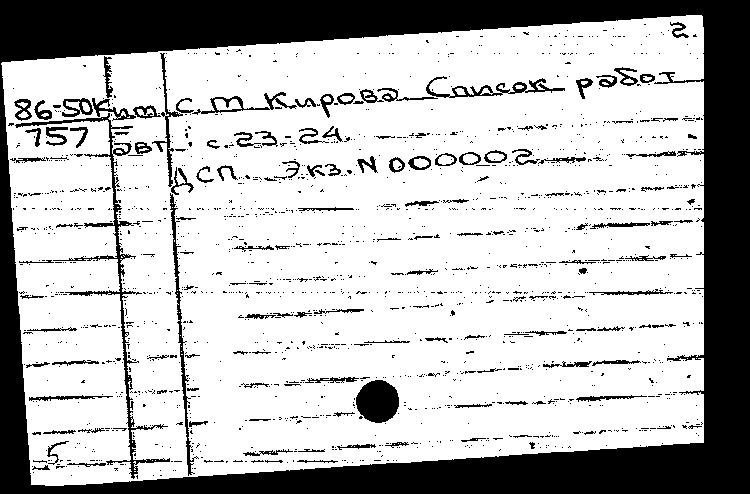 2.
86-50к им. С. М Кирова. Список работ
757 авт.: с. 23-24.
ДСП. Экз. N 000002
5